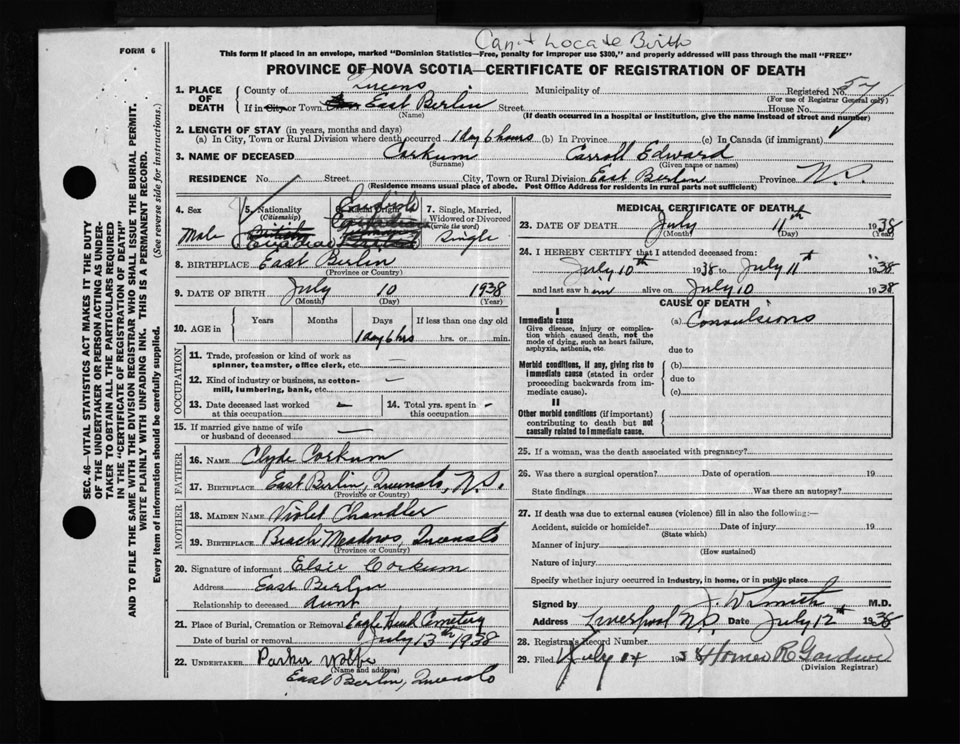 Can't Locate Birth
FORM 6
This form if placed in an envelope, marked "Dominion Statistics—Free, penalty for improper use $300," and properly addressed will pass through the mail "FREE"
PROVINCE OF NOVA SCOTIA—CERTIFICATE OF REGISTRATION OF DEATH
SEC. 46—VITAL STATISTICS ACT MAKES IT THE DUTY
OF THE UNDERTAKER OR PERSON ACTING AS UNDER-
TAKER TO OBTAIN ALL THE PARTICULARS REQUIRED
IN THE "CERTIFICATE OF REGISTRATION OF DEATH"
AND TO FILE THE SAME WITH THE DIVISION REGISTRAR WHO SHALL ISSUE THE BURIAL PERMIT.
WRITE PLAINLY WITH UNFADING INK. THIS IS A PERMANENT RECORD.
Every item of information should be carefully supplied. (See reverse side for instructions.)
1. PLACE OF DEATH
County of Queens Municipality of Registered No. 57
(For use of Registrar General only)
If in City or Town East Berlin Street House No.
(Name) (If death occurred in a hospital or institution, give the name instead of street and number)
2. LENGTH OF STAY (in years, months and days)
(a) In City, Town or Rural Division where death occurred 1 day 6 hours (b) In Province (c) In Canada (if immigrant)
3. NAME OF DECEASED Corkum Carroll Edward
(Surname) (Given name or names)
RESIDENCE No. Street City, Town or Rural Division East Berlin Province N.S.
(Residence means usual place of abode. Post Office Address for residents in rural parts not sufficient)
4. Sex Male
5. Nationality (Citizenship) British Canadian
7. Single, Married, Widowed or Divorced (write the word) Single
8. BIRTHPLACE East Berlin
(Province or Country)
9. DATE OF BIRTH July 10 1938
(Month) (Day) (Year)
10. AGE in Years Months Days If less than one day old
1 day 6 hrs hrs. or min.
OCCUPATION
11. Trade, profession or kind of work as spinner, teamster, office clerk, etc. —
12. Kind of industry or business, as cotton-mill, lumbering, bank, etc. —
13. Date deceased last worked at this occupation —
14. Total yrs. spent in this occupation -
15. If married give name of wife or husband of deceased —
FATHER
16. NAME Clyde Corkum
17. BIRTHPLACE East Berlin, Queens Co, N.S.
(Province or Country)
MOTHER
18. MAIDEN NAME Violet Chandler
19. BIRTHPLACE Beach Meadows, Queens Co
(Province or Country)
20. Signature of informant Elsie Corkum
Address East Berlin
Relationship to deceased Aunt
21. Place of Burial, Cremation or Removal Eagle Head Cemetery
Date of burial or removal July 13th 1938
22. UNDERTAKER Parker Wolfe
(Name and address)
East Berlin, Queens Co
MEDICAL CERTIFICATE OF DEATH
23. DATE OF DEATH July 11th 1938
(Month) (Day) (Year)
24. I HEREBY CERTIFY that I attended deceased from:
July 10th 1938 to July 11th 1938
and last saw him alive on July 10 1938
CAUSE OF DEATH
I
Immediate cause (a) Convulsions
Give disease, injury or complica-
tion which caused death, not the
mode of dying, such as heart failure,
asphyxia, asthenia, etc. due to
Morbid conditions, if any, giving rise to (b)
immediate cause (stated in order due to
proceeding backwards from im-
mediate cause). (c)
II
Other morbid conditions (if important)
contributing to death but not
causally related to immediate cause.
25. If a woman, was the death associated with pregnancy?
26. Was there a surgical operation? Date of operation 19
State findings Was there an autopsy?
27. If death was due to external causes (violence) fill in also the following:—
Accident, suicide or homicide? Date of injury 19
(State which)
Manner of injury
(How sustained)
Nature of injury
Specify whether injury occurred in industry, in home, or in public place
Signed by J. W. Smith M.D.
Address Liverpool N.S. Date July 12th 1938
28. Registrar's Record Number
29. Filed July 14 1938 Homer R
(Division Registrar)